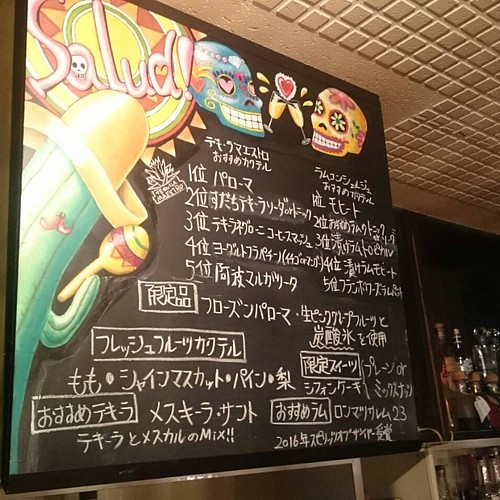 Salud!
テキーラマエストロ
おすすめカクテル
1位 パローマ
2位 すだちテキーラソーダorトニック
3位 テキーラネグローニ コーヒースマッシュ
4位 ヨーグルトフラペチーノ(イチゴorマンゴー)
5位 阿波マルガリータ
ラムコンシェルジュ
おすすめカクテル
1位 モヒート
2位 おすすめラムのトニック
3位 漬けラム
4位 漬けラムモヒート
5位 フランボワーズラム
限定品
フローズンパローマ・生ピンクグレープフルーツと
炭酸氷を使用
フレッシュフルーツカクテル
もも・シャインマスカット・パイン・梨
限定スイーツ プレーン or
シフォンケーキ ミックスナッツ
おすすめテキーラ メスキーラ・サント
テキーラとメスカルのMix!!
おすすめラム ロンマツサレム23
2016年スピリッツオブザイヤー受賞